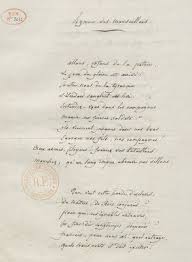 Hymne des marseillais
allons, enfans de la patrie
le jour de gloire est arrivé
contre nous de la tyrannie
l'étendart sanglant est levé
Entendez-vous dans les campagnes
mugir ces féroces soldats
ils viennent jusque dans vos bras
égorger vos fils, vos compagnes
aux armes, citoyens, formez vos bataillons
marchez, qu'un sang impur abreuve nos sillons
Que veut cette horde d'esclaves
de traîtres, de Rois conjurés
pour qui ces ignobles entraves
ces fers dès longtemps préparés
français pour nous, ah quel outrage
quels transports il doit exciter